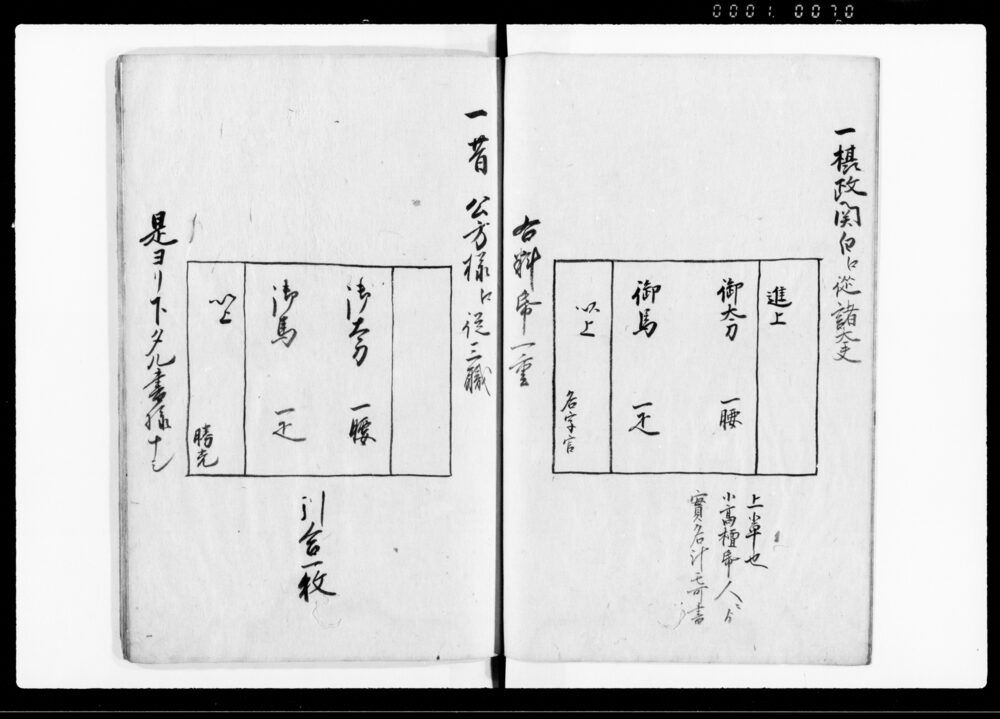 0001 0070
一摂政関白ヘ従諸大夫
進上
御太刀 一腰
御馬 一疋
以上
名字官
上輩也
小高檀帋人ニヨリ
實名計モ可書
右料帋一重
一昔 公方様ヘ従三職
御太刀 一腰
御馬 一疋
以上
勝元
引合一枚
是ヨリ下タル書様ナシ